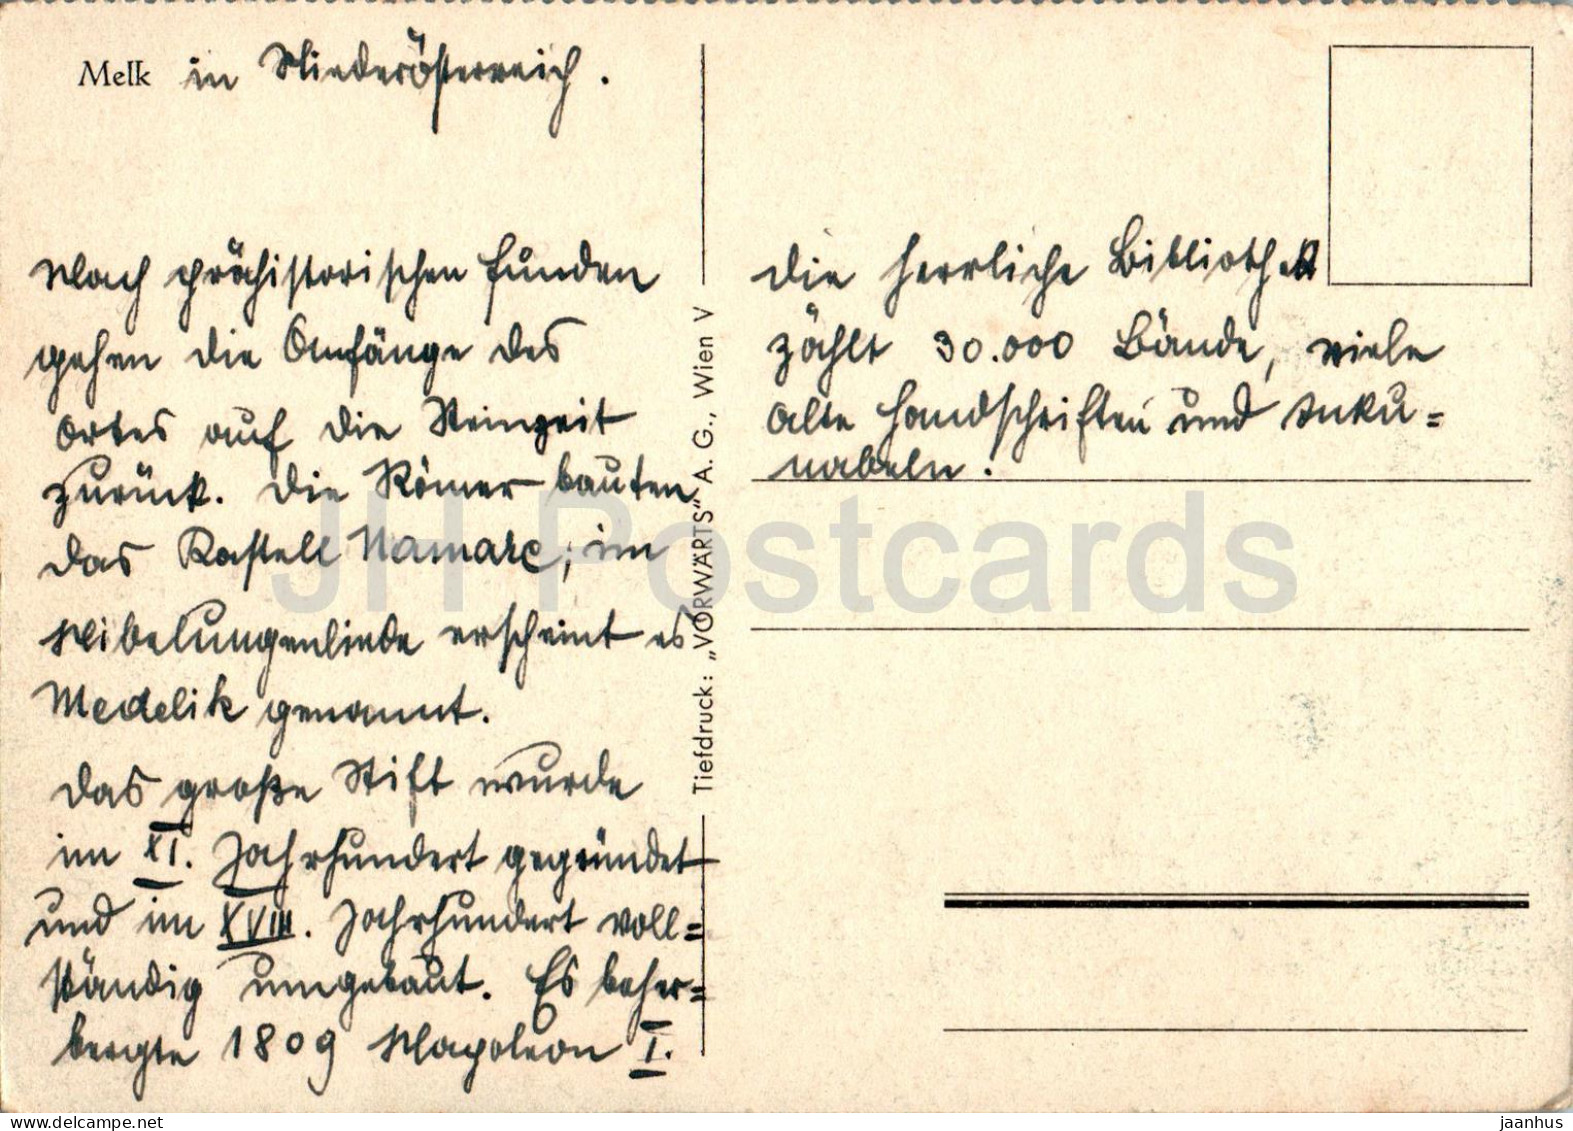 Melk in Niederösterreich.
Nach prähistorischen Funden
gehen die Anfänge des
Ortes auf die Steinzeit
zurück. Die Römer bauten
das Kastell Namare; im
Nibelungenliede erscheint es
Medelik genannt.
Das große Stift wurde
im XI. Jahrhundert gegründet
und im XVIII. Jahrhundert voll=
ständig umgebaut. Es beher=
bergte 1809 Napoleon I.
Tiefdruck: „VORWÄRTS“ A. G., Wien V
Die herrliche Bibliothek
zählt 30.000 Bände, viele
alte Handschriften und Inku=
nabeln.
JH Postcards
delcampe.net
jaanhus